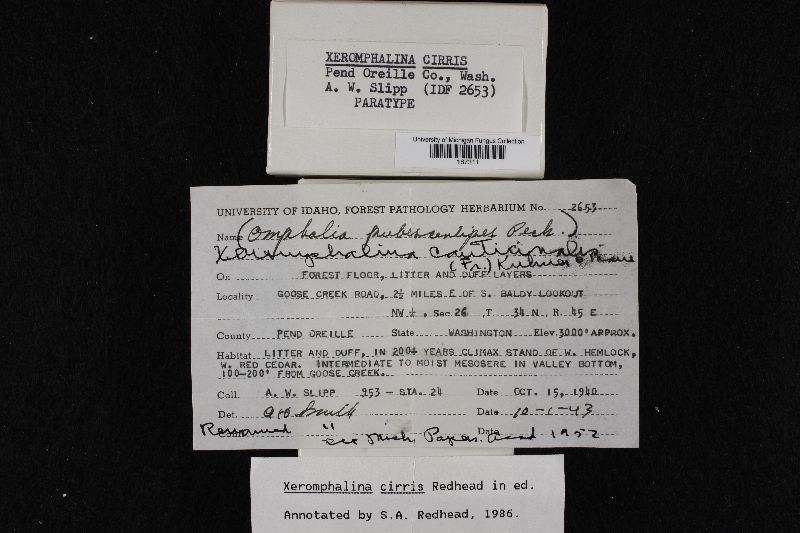 XEROMPHALINA CIRRIS
Pend Oreille Co., Wash.
A. W. Slipp (IDF 2653)
PARATYPE
University of Michigan Fungus Collection
UNIVERSITY OF IDAHO, FOREST PATHOLOGY HERBARIUM No. 2653
Name (Omphalia pubescentipes Peck.)
Xeromphalina cauticinalis
(Fr.) Kuhner & Maire
On FOREST FLOOR, LITTER AND DUFF LAYERS
Locality GOOSE CREEK ROAD, 2½ MILES E OF S. BALDY LOOKOUT
NW ¼, Sec. 26, T. 34 N, R. 45 E
County PEND OREILLE State WASHINGTON Elev. 3000' APPROX.
Habitat LITTER AND DUFF, IN 200+ YEARS CLIMAX STAND OF W. HEMLOCK,
W. RED CEDAR. INTERMEDIATE TO MOIST MESOSERE IN VALLEY BOTTOM,
100-200' FROM GOOSE CREEK.
Coll. A. W. SLIPP 953 - STA. 24 Date OCT. 15, 1940
Det. AH Smith Date 10-1-43
Renamed " Mich. Papers. Acad 1952 Date
Xeromphalina cirris Redhead in ed.
Annotated by S.A. Redhead, 1986.